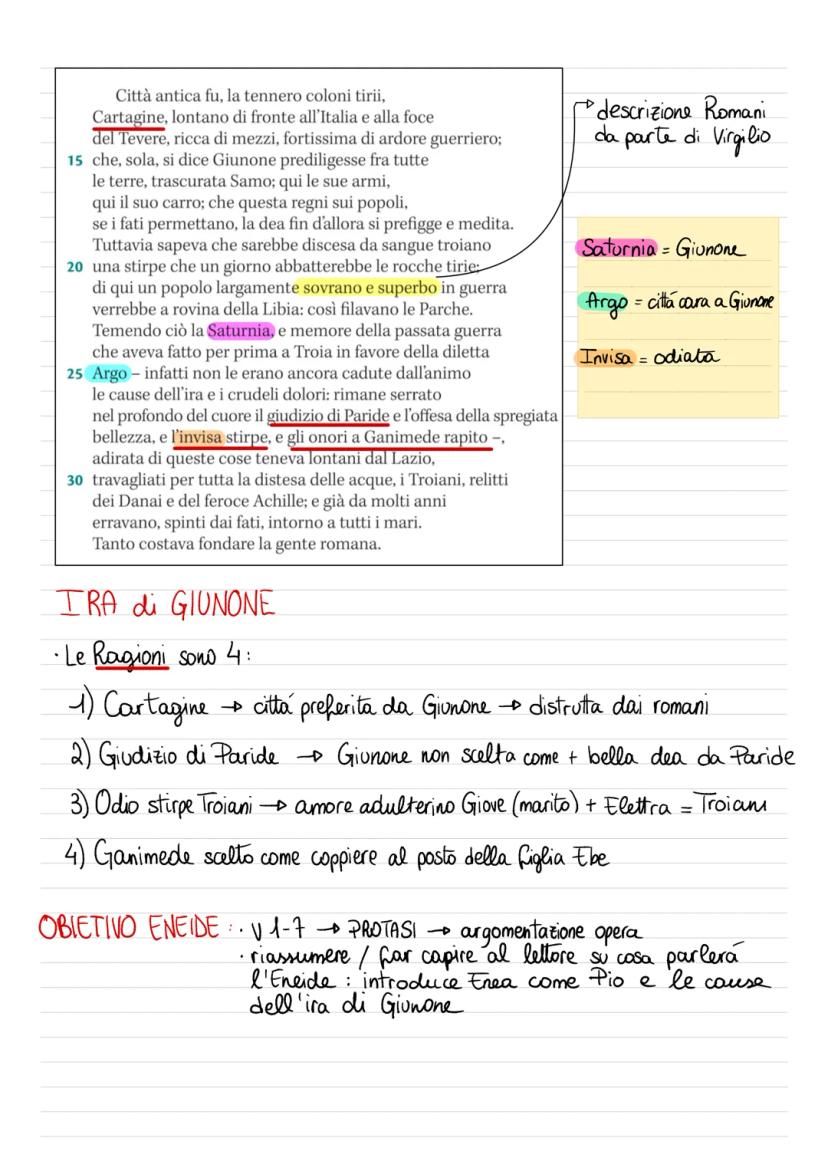 Città antica fu, la tennero coloni tirii,
Cartagine, lontano di fronte all'Italia e alla foce
del Tevere, ricca di mezzi, fortissima di ardore guerriero;
15 che, sola, si dice Giunone prediligesse fra tutte
le terre, trascurata Samo; qui le sue armi,
qui il suo carro; che questa regni sui popoli,
se i fati permettano, la dea fin d'allora si prefigge e medita.
Tuttavia sapeva che sarebbe discesa da sangue troiano
20 una stirpe che un giorno abbatterebbe le rocche tirie;
di qui un popolo largamente sovrano e superbo in guerra
verrebbe a rovina della Libia: così filavano le Parche.
Temendo ciò la Saturnia, e memore della passata guerra
che aveva fatto per prima a Troia in favore della diletta
25 Argo – infatti non le erano ancora cadute dall'animo
le cause dell'ira e i crudeli dolori: rimane serrato
nel profondo del cuore il giudizio di Paride e l'offesa della spregiata
bellezza, e l'invisa stirpe, e gli onori a Ganimede rapito –,
adirata di queste cose teneva lontani dal Lazio,
30 travagliati per tutta la distesa delle acque, i Troiani, relitti
dei Danai e del feroce Achille; e già da molti anni
erravano, spinti dai fati, intorno a tutti i mari.
Tanto costava fondare la gente romana.
descrizione Romani
da parte di Virgilio
Saturnia = Giunone
Argo = cittá cara a Giunone
Invisa = odiata
IRA di GIUNONE
· Le Ragioni sono 4:
1) Cartagine → cittá preferita da Giunone → distrutta dai romani
2) Giudizio di Paride → Giunone non scelta come + bella dea da Paride
3) Odio stirpe Troiani → amore adulterino Giove (marito) + Elettra = Troiani
4) Ganimede scelto come coppiere al posto della figlia Ebe
OBIETIVO ENEIDE : · V 1-7 → PROTASI → argomentazione opera
· riassumere / far capire al lettore su cosa parlerá
l'Eneide : introduce Enea come Pio e le cause
dell'ira di Giunone